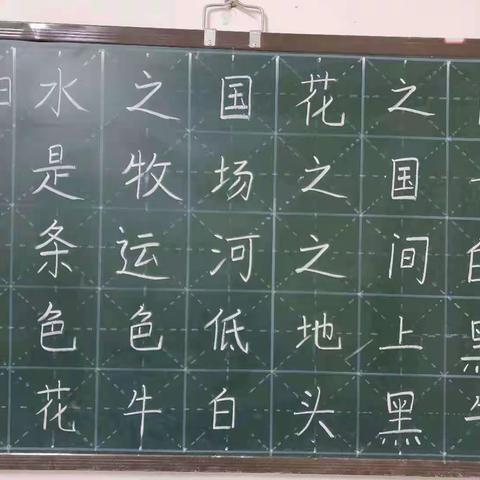 水之国花之
是牧场之国
条运河之间
色色低地上黑
花牛白头黑牛